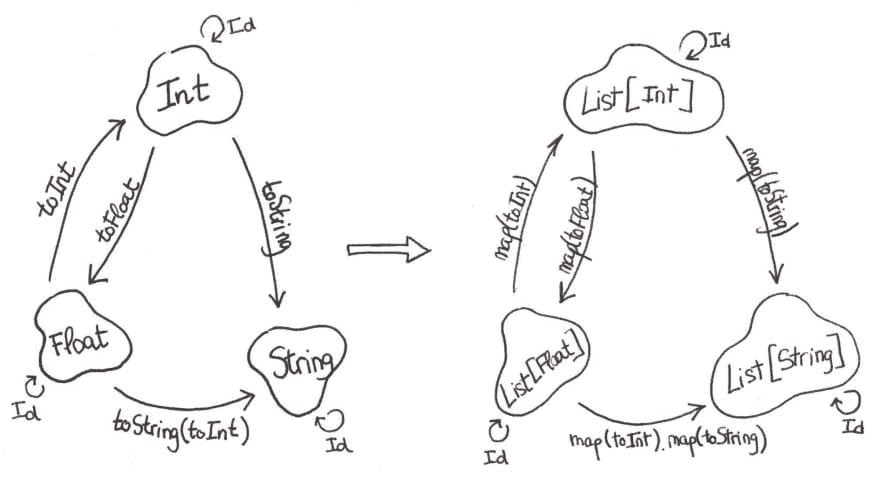 Id
Int
toInt
toFloat
toString
Float
String
Id
toString(toInt)
Id
Id
List[Int]
map(toInt)
map(toFloat)
map(toString)
List[Float]
List[String]
Id
map(toInt).map(toString)
Id